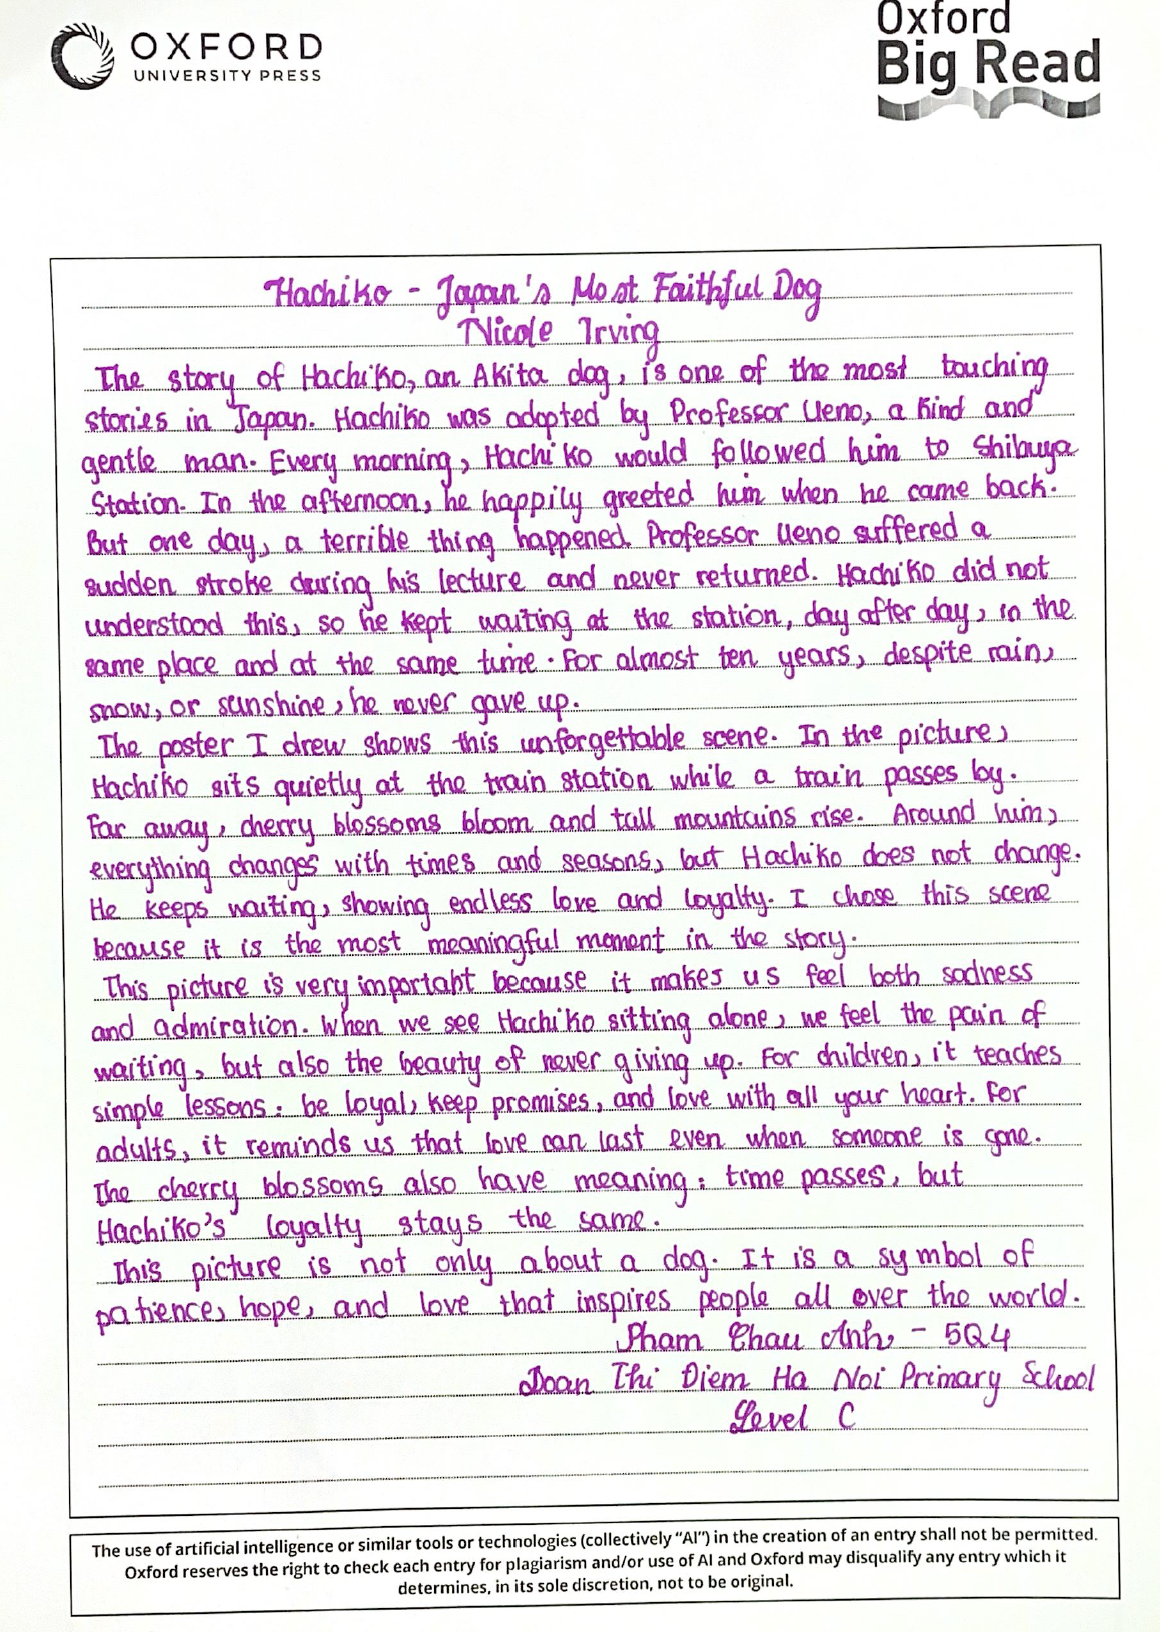 OXFORD
UNIVERSITY PRESS
Oxford
Big Read
Hachiko - Japan's Most Faithful Dog
Nicole Irving
The story of Hachiko, an Akita dog, is one of the most touching
stories in Japan. Hachiko was adopted by Professor Ueno, a kind and
gentle man. Every morning, Hachiko would followed him to Shibuya
Station. In the afternoon, he happily greeted him when he came back.
But one day, a terrible thing happened. Professor Ueno suffered a
sudden stroke during his lecture and never returned. Hachiko did not
understood this, so he kept waiting at the station, day after day, in the
same place and at the same time. For almost ten years, despite rain,
snow, or sunshine, he never gave up.
The poster I drew shows this unforgettable scene. In the picture,
Hachiko sits quietly at the train station while a train passes by.
Far away, cherry blossoms bloom and tall mountains rise. Around him,
everything changes with times and seasons, but Hachiko does not change.
He keeps waiting, showing endless love and loyalty. I chose this scene
because it is the most meaningful moment in the story.
This picture is very important because it makes us feel both sadness
and admiration. When we see Hachiko sitting alone, we feel the pain of
waiting, but also the beauty of never giving up. For children, it teaches
simple lessons: be loyal, keep promises, and love with all your heart. For
adults, it reminds us that love can last even when someone is gone.
The cherry blossoms also have meaning: time passes, but
Hachiko's loyalty stays the same.
This picture is not only about a dog. It is a symbol of
patience, hope, and love that inspires people all over the world.
Pham Chau Anh - 5Q4
Doan Thi Diem Ha Noi Primary School
Level C
The use of artificial intelligence or similar tools or technologies (collectively "AI") in the creation of an entry shall not be permitted.
Oxford reserves the right to check each entry for plagiarism and/or use of AI and Oxford may disqualify any entry which it
determines, in its sole discretion, not to be original.